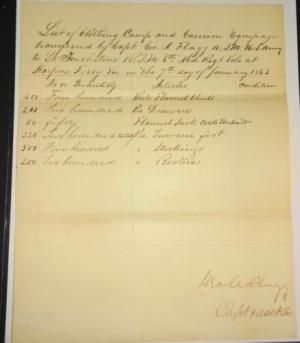 List of Clothing Camp and Garrison Equipage
transferred by Capt. Geo. A. Flagg A.Q.M. U.S. Army
to Lt. R.Q.M. 6th Md. Regt Vols at
Harpers Ferry Va. on the 7th day of January 1863
No. or Quantity Articles Condition
400 Four hundred Flannel Shirts
200 Two hundred Pr Drawers
50 fifty Flannel Sack Coats
220 Two hundred twenty Pr Trowsers foot
500 Five hundred " Stockings
200 Two hundred " Booties
Geo. A. Flagg
Capt & asst Q